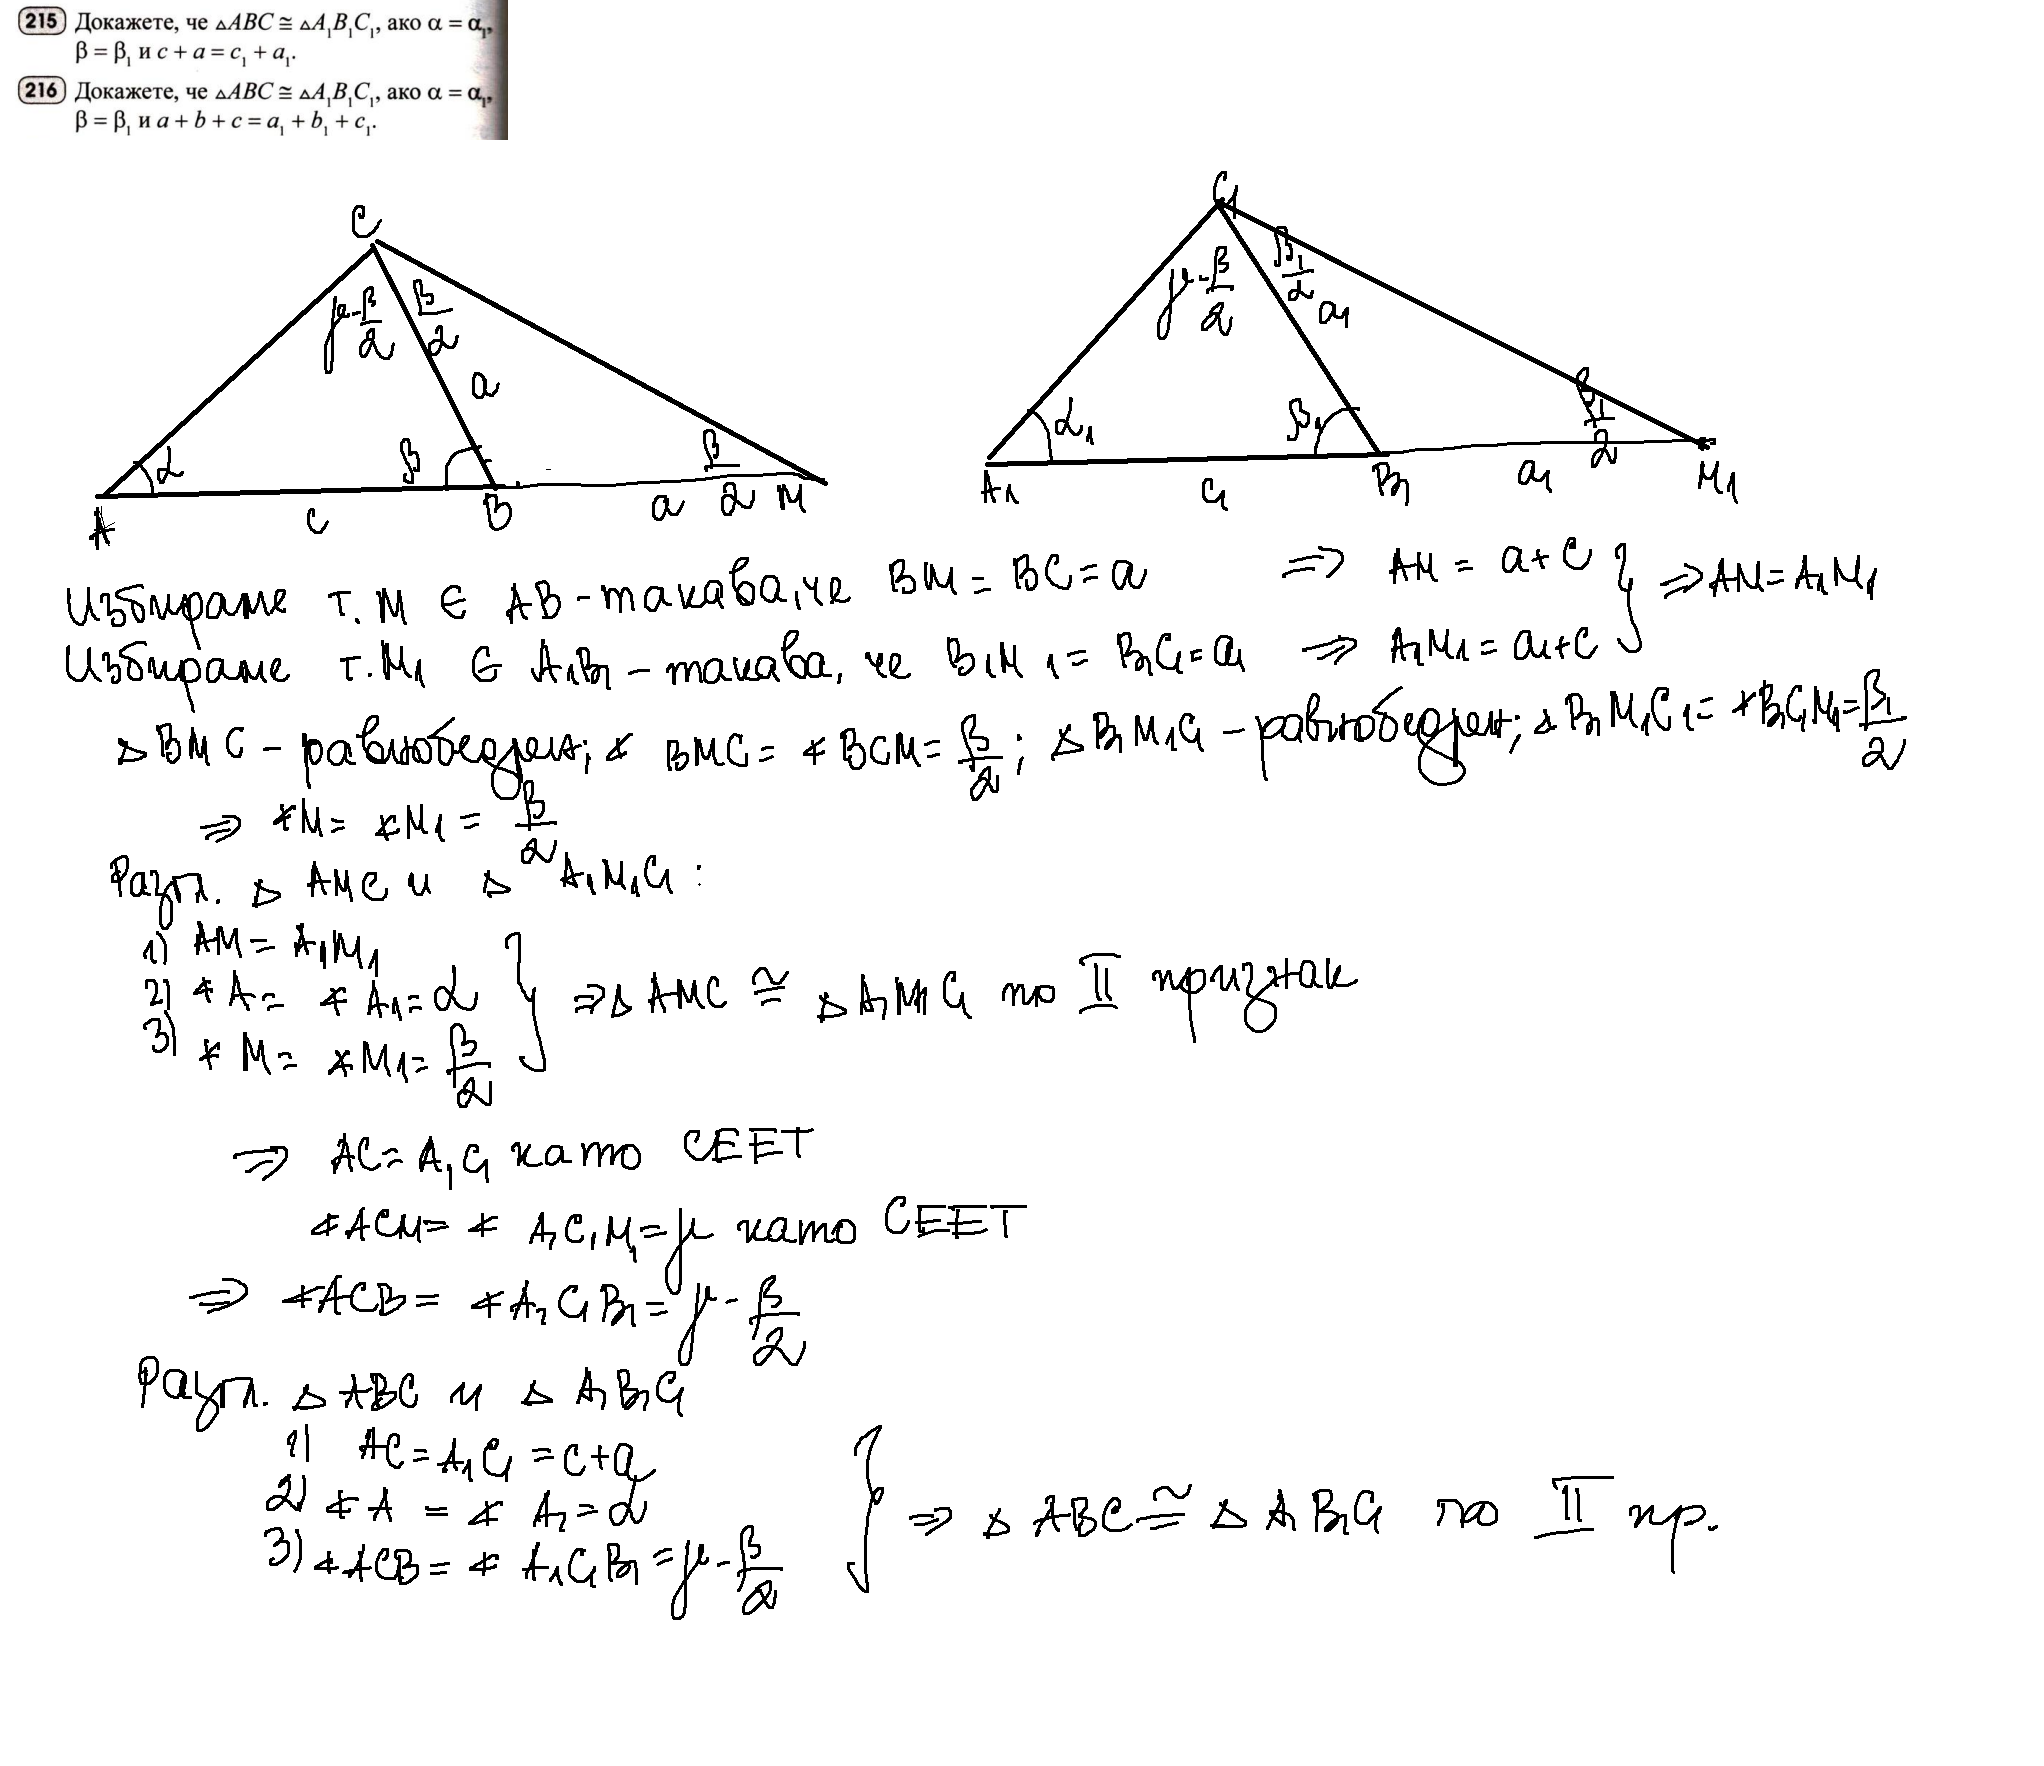 215 Докажете, че △ABC ≅ △A₁B₁C₁, ако α = α₁,
β = β₁ и c + a = c₁ + a₁.
216 Докажете, че △ABC ≅ △A₁B₁C₁, ако α = α₁,
β = β₁ и a + b + c = a₁ + b₁ + c₁.
C
μ-β/2 β/2
a
α β β/2
A c B a M
C₁
μ-β/2 β₁/2
a₁
α₁ β₁ β₁/2
A₁ c₁ B₁ a₁ M₁
Избираме т. M ∈ AB - такава, че BM = BC = a ⇒ AM = a + c } ⇒ AM = A₁M₁
Избираме т. M₁ ∈ A₁B₁ - такава, че B₁M₁ = B₁C₁ = a₁ ⇒ A₁M₁ = a₁ + c
△ BMC - равнобедрен; ∢ BMC = ∢ BCM = β/2; △ B₁M₁C₁ - равнобедрен; ∢ B₁M₁C₁ = ∢ B₁C₁M₁ = β₁/2
⇒ ∢M = ∢M₁ = β/2
Разгл. △ AMC и △ A₁M₁C₁:
1) AM = A₁M₁
2) ∢ A = ∢ A₁ = α } ⇒ △ AMC ≅ △ A₁M₁C₁ по II признак
3) ∢ M = ∢ M₁ = β/2
⇒ AC = A₁C₁ като СЕЕТ
∢ACM = ∢ A₁C₁M₁ = μ като СЕЕТ
⇒ ∢ACB = ∢A₁C₁B₁ = μ - β/2
Разгл. △ ABC и △ A₁B₁C₁
1) AC = A₁C₁ = c + a
2) ∢ A = ∢ A₁ = α } ⇒ △ ABC ≅ △ A₁B₁C₁ по II пр.
3) ∢ACB = ∢ A₁C₁B₁ = μ - β/2